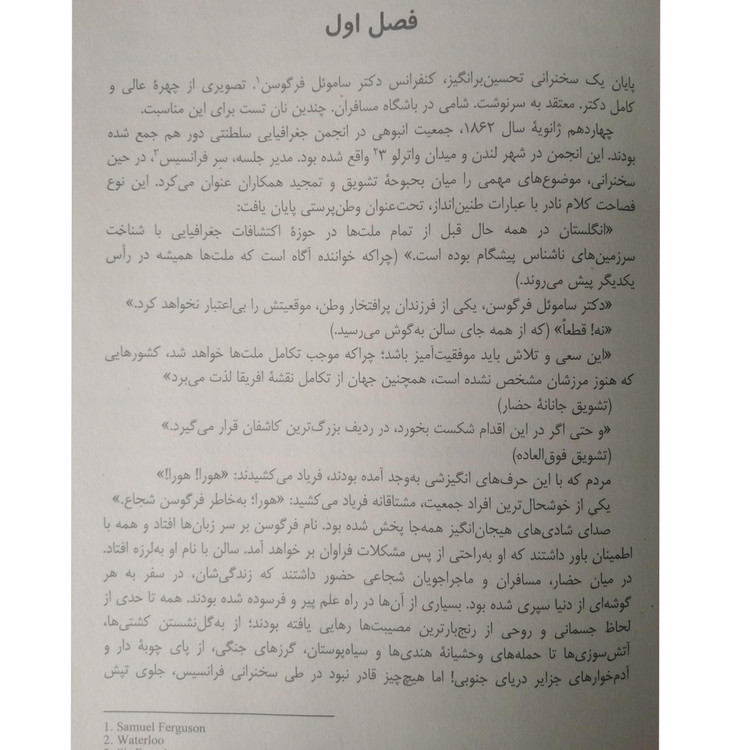 فصل اول
پایان یک سخنرانی تحسین‌برانگیز، کنفرانس دکتر ساموئل فرگوسن۱. تصویری از چهرهٔ عالی و
کامل دکتر. معتقد به سرنوشت. شامی در باشگاه مسافران. چندین نان تست برای این مناسبت.
چهاردهم ژانویهٔ سال ۱۸۶۲، جمعیت انبوهی در انجمن جغرافیایی سلطنتی دور هم جمع شده
بودند. این انجمن در شهر لندن و میدان واترلو ۳۲ واقع شده بود. مدیر جلسه، سِر فرانسیس۳، در حین
سخنرانی، موضوع‌های مهمی را میان بحبوحهٔ تشویق و تمجید همکاران عنوان می‌کرد. این نوع
فصاحت کلام نادر با عبارات طنین‌انداز، تحت‌عنوان وطن‌پرستی پایان یافت:
«انگلستان در همه حال قبل از تمام ملت‌ها در حوزهٔ اکتشافات جغرافیایی با شناخت
سرزمین‌های ناشناس پیشگام بوده است.» (چراکه خواننده آگاه است که ملت‌ها همیشه در رأس
یکدیگر پیش می‌روند.)
«دکتر ساموئل فرگوسن، یکی از فرزندان پرافتخار وطن، موقعیتش را بی‌اعتبار نخواهد کرد.»
«نه! قطعاً» (که از همه جای سالن به‌گوش می‌رسید.)
«این سعی و تلاش باید موفقیت‌آمیز باشد؛ چراکه موجب تکامل ملت‌ها خواهد شد، کشورهایی
که هنوز مرزشان مشخص نشده است، همچنین جهان از تکامل نقشهٔ افریقا لذت می‌برد»
(تشویق جانانهٔ حضار)
«و حتی اگر در این اقدام شکست بخورد، در ردیف بزرگ‌ترین کاشفان قرار می‌گیرد.»
(تشویق فوق‌العاده)
مردم که با این حرف‌های انگیزشی به‌وجد آمده بودند، فریاد می‌کشیدند: «هورا! هورا!»
یکی از خوشحال‌ترین افراد جمعیت، مشتاقانه فریاد می‌کشید: «هورا؛ به‌خاطر فرگوسن شجاع.»
صدای شادی‌های هیجان‌انگیز همه‌جا پخش شده بود. نام فرگوسن بر سر زبان‌ها افتاد و همه با
اطمینان باور داشتند که او به‌راحتی از پس مشکلات فراوان بر خواهد آمد. سالن با نام او به‌لرزه افتاد.
در میان حضار، مسافران و ماجراجویان شجاعی حضور داشتند که زندگی‌شان، در سفر به هر
گوشه‌ای از دنیا سپری شده بود. بسیاری از آن‌ها در راه علم پیر و فرسوده شده بودند. همه تا حدی از
لحاظ جسمانی و روحی از رنج‌بارترین مصیبت‌ها رهایی یافته بودند؛ از به‌گل‌نشستن کشتی‌ها،
آتش‌سوزی‌ها تا حمله‌های وحشیانهٔ هندی‌ها و سیاه‌پوستان، گرزهای جنگی، از پای چوبهٔ دار و
آدم‌خوارهای جزایر دریای جنوبی! اما هیچ‌چیز قادر نبود در طی سخنرانی فرانسیس، جلوی تپش
1. Samuel Ferguson
2. Waterloo